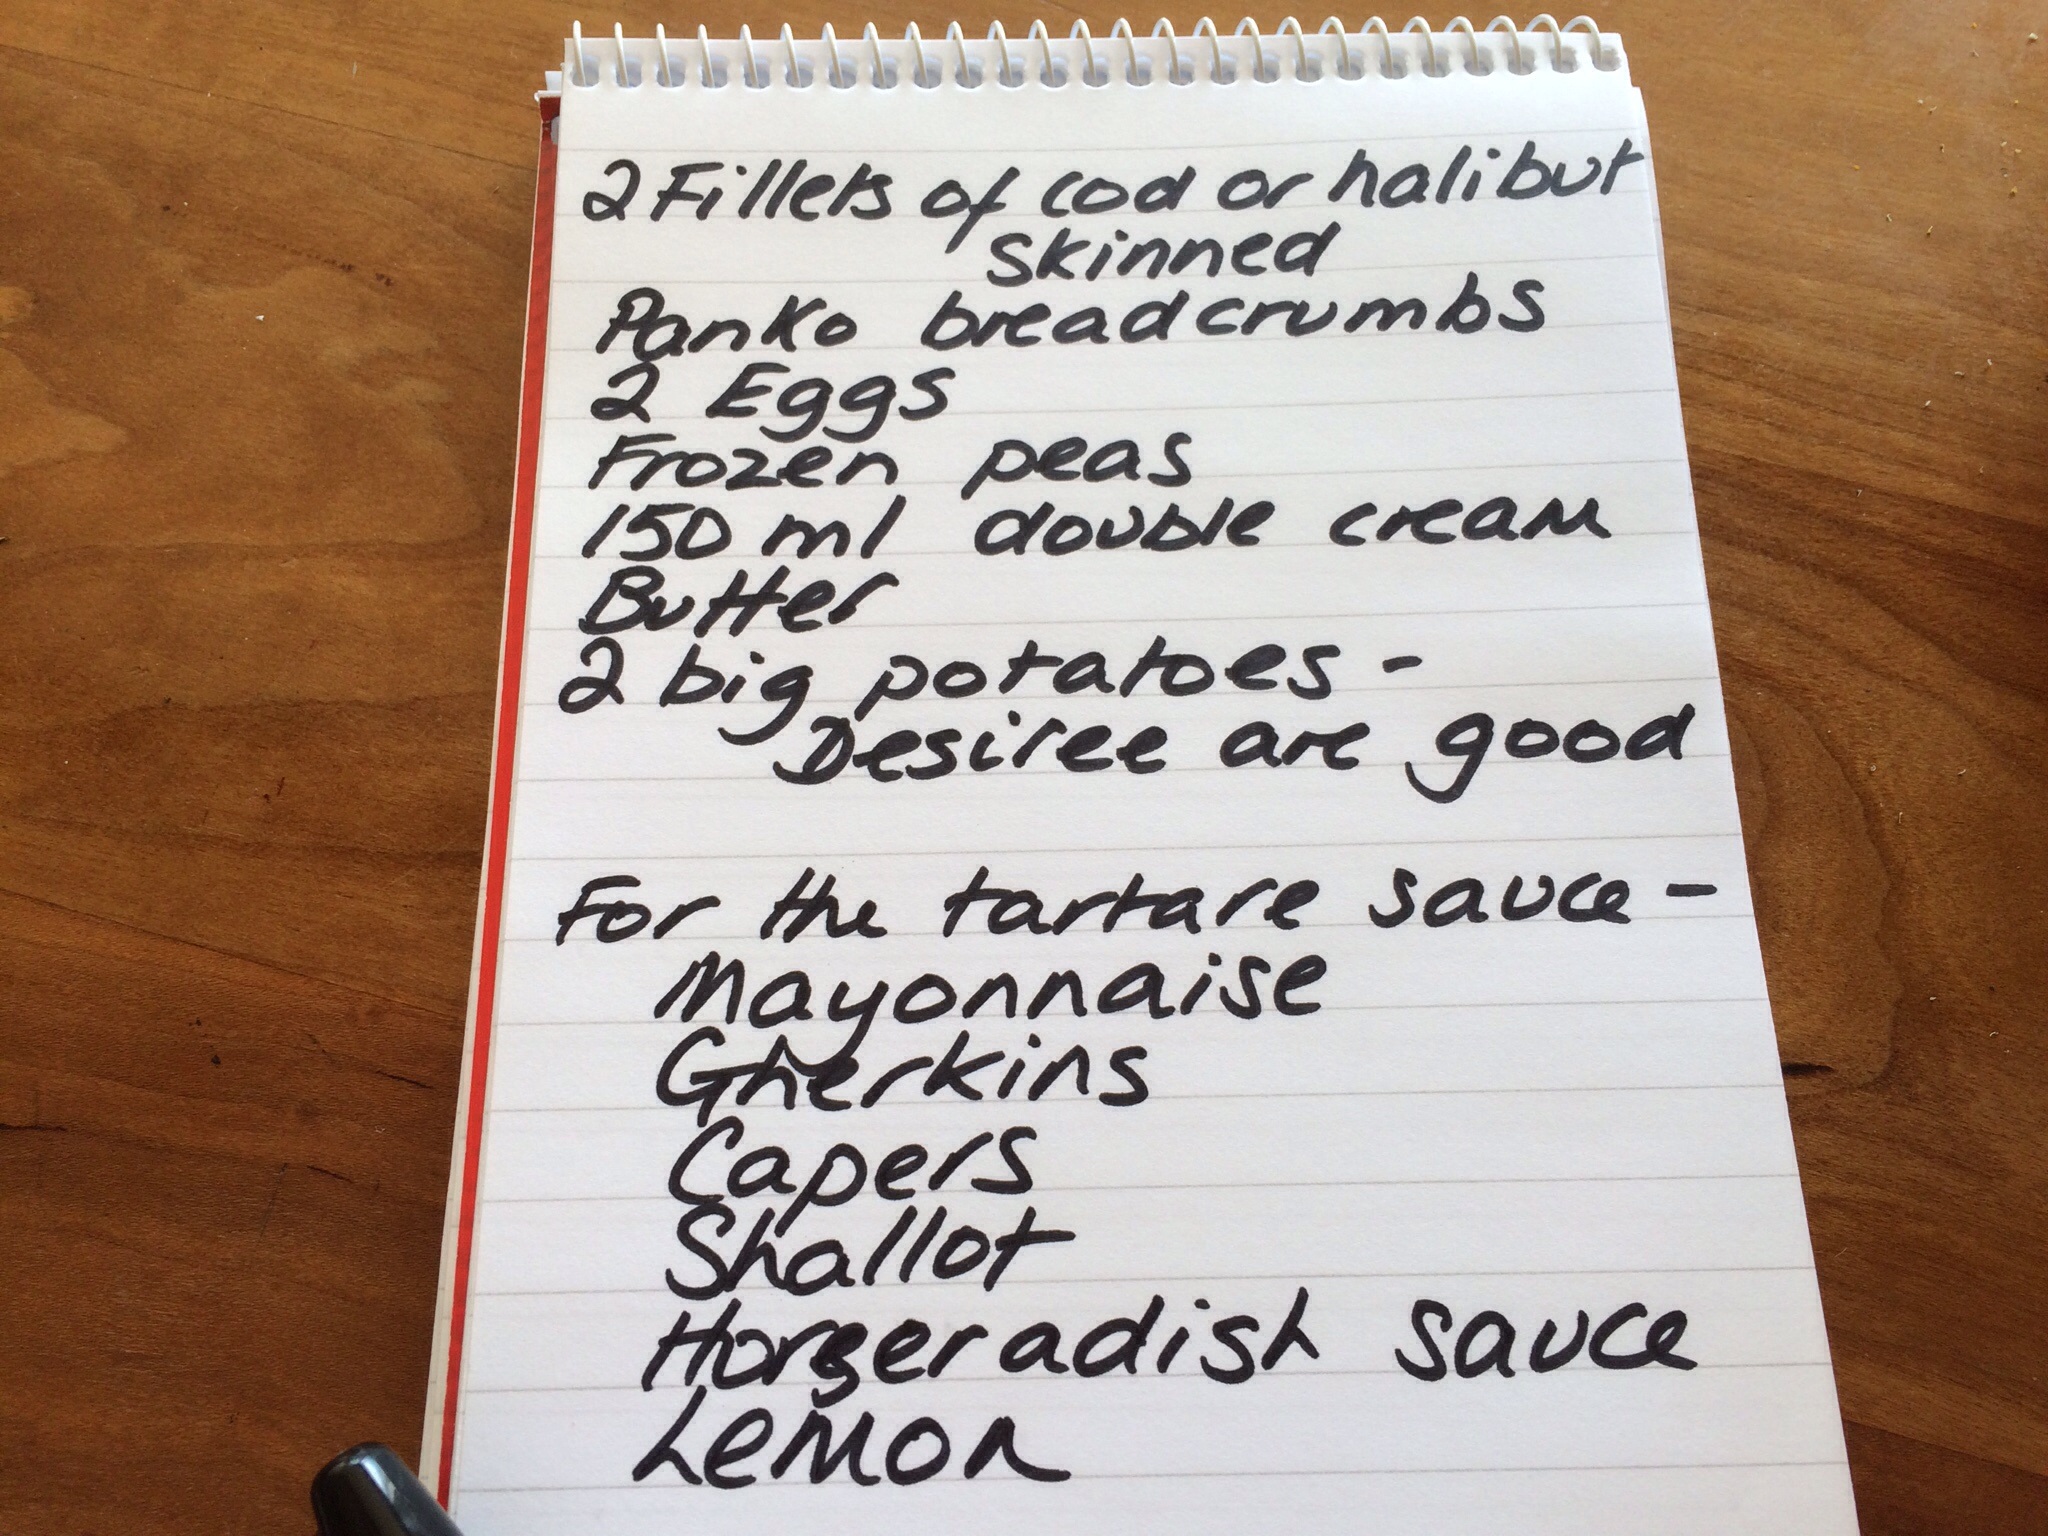 2 Fillets of cod or halibut
skinned
Panko breadcrumbs
2 Eggs
Frozen peas
150 ml double cream
Butter
2 big potatoes -
Desiree are good
For the tartare sauce -
Mayonnaise
Gherkins
Capers
Shallot
Horseradish sauce
Lemon